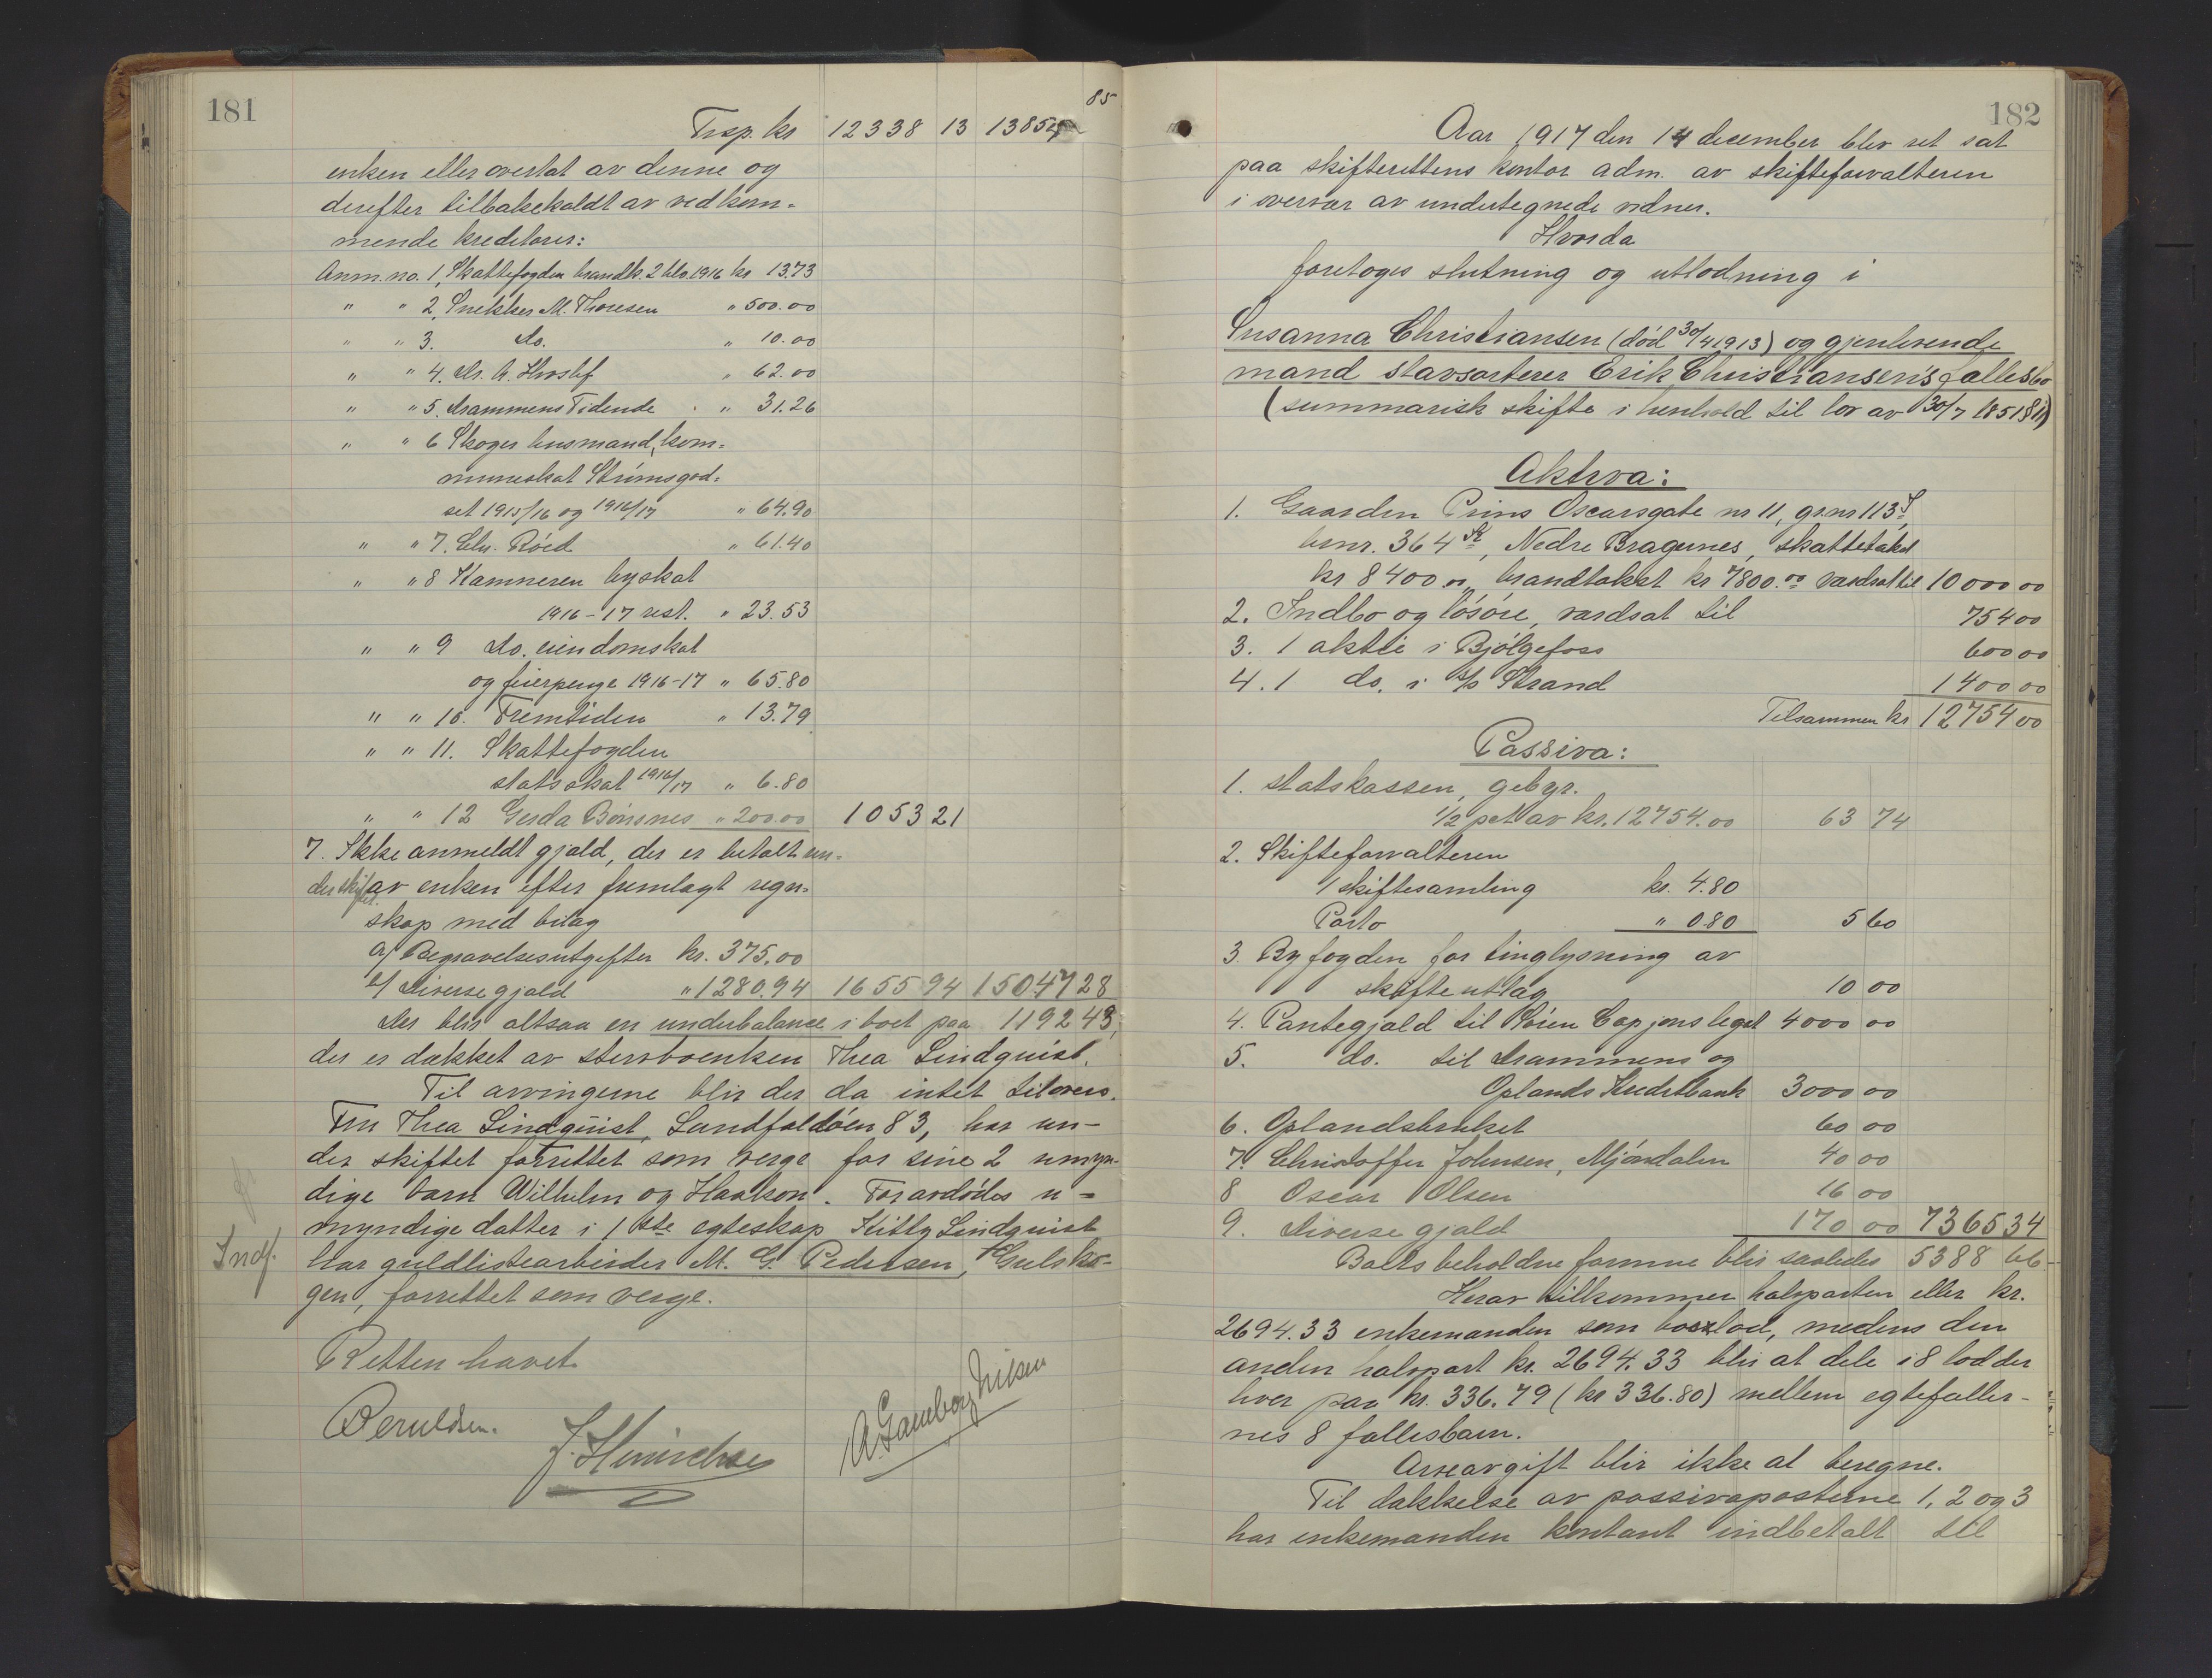 181
Trsp. kr 12338 13 13854 85
enken eller overtat av denne og
derefter tilbakekaldt av vedkom-
mende kreditorer:
Anm. no. 1, Skattefogden brandk. 2 hlv. 1916 kr 13.73
" " 2, Snekker M. Thoresen " 500.00
" " 3. do. " 10.00
" " 4. Dr. A. " 62.00
" " 5. Drammens Tidende " 31.26
" " 6 Skoger husmand, kom-
muneskat Strømsgod-
set 1915/16 og 1916/17 " 64.90
" " 7. Chr. Röed " 61.40
" " 8 Kæmneren byskat
1916-17 rest. " 23.53
" " 9 Do. eiendomskat
og feierpenge 1916-17 " 65.80
" " 10. Fremtiden " 13.79
" " 11. Skattefogden
statsskat 1916/17 " 6.80
" " 12 Gerda Bonsnes " 200.00 1053 21
7. Ikke anmeldt gjæld, der er betalt un-
der skiftet av enken efter fremlagt regn-
skap med bilag
a/ Begravelsesutgifter kr. 375.00
b/ Diverse gjæld " 1280.94 1655 94 15047 28
Der blir altsaa en underbalance i boet paa 1192 43,
der er dækket av stervboenken Thea Lindquist.
Til arvingerne blir der da intet tilovers.
Fru Thea Lindquist, Lundfaldöen 83, har un-
der skiftet forrettet som verge for sine 2 umyn-
dige barn Wilhelm og Haakon. For avdödes u-
myndige datter i 1ste egteskap Kitty Lindquist
Indf.
har guldlistearbeider M. G. Pedersen, Gulsko-
gen, forrettet som verge.
Retten hævet
J. Hinrichsen
A. Gamborg Nilsen
182
Aar 1917 den 14 december blev ret sat
paa skifterettens kontor adm. av skifteforvalteren
i overvær av undertegnede vidner.
Hvorda
foretoges slutning og utlodning i
Susanna Christiansen (död 30/4 1913) og gjenlevende
mand stavsorterer Erik Christiansen's fællesbo
(summarisk skifte i henhold til lov av 30/7 1851 § 11)
Aktiva:
1. Gaarden Prins Oscarsgate nr 11, gr.nr 113 I,
br.nr. 364, Nedre Bragernes, skattetakst
kr 8400.00 brandtakst kr 7800.00 værdsat til 10000 00
2. Indbo og lösöre, værdsat til 754 00
3. 1 aktie i Bjölgefoss 600 00
4. 1 do. i A/S Strand 1400 00
Tilsammen kr 12754 00
Passiva:
1. Statskassen, gebyr.
1/2 pct av kr. 12754.00 63 74
2. Skifteforvalteren
1 skiftesamling kr. 4.80
Porto " 0.80 5 60
3. Byfogden for tinglysning av
skifteutlæg 10 00
4. Pantegjæld til Sören Capjons legat 4000 00
5. do. til Drammens og
Oplands Kreditbank 3000 00
6. Oplandsbruket 60 00
7. Christoffer Johnsen, Mjöndalen 40 00
8 Oscar Olsen 16 00
9. Diverse gjæld 170 00 7365 34
Boets beholdne formue blir saaledes 5388 66
Herav tilkommer halvparten eller kr.
2694.33 enkemanden som boeslod, medens den
anden halvpart kr. 2694.33 blir at dele i 8 lodder
hver paa kr. 336.79 (kr 336.80) mellem egtefæller-
nes 8 fællesbarn.
Arveavgift blir ikke at beregne.
Til dækkelse av passivaposterne 1, 2 og 3
har enkemanden kontant indbetalt til